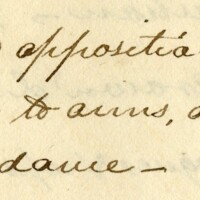 oppositi
to arms,
dance —